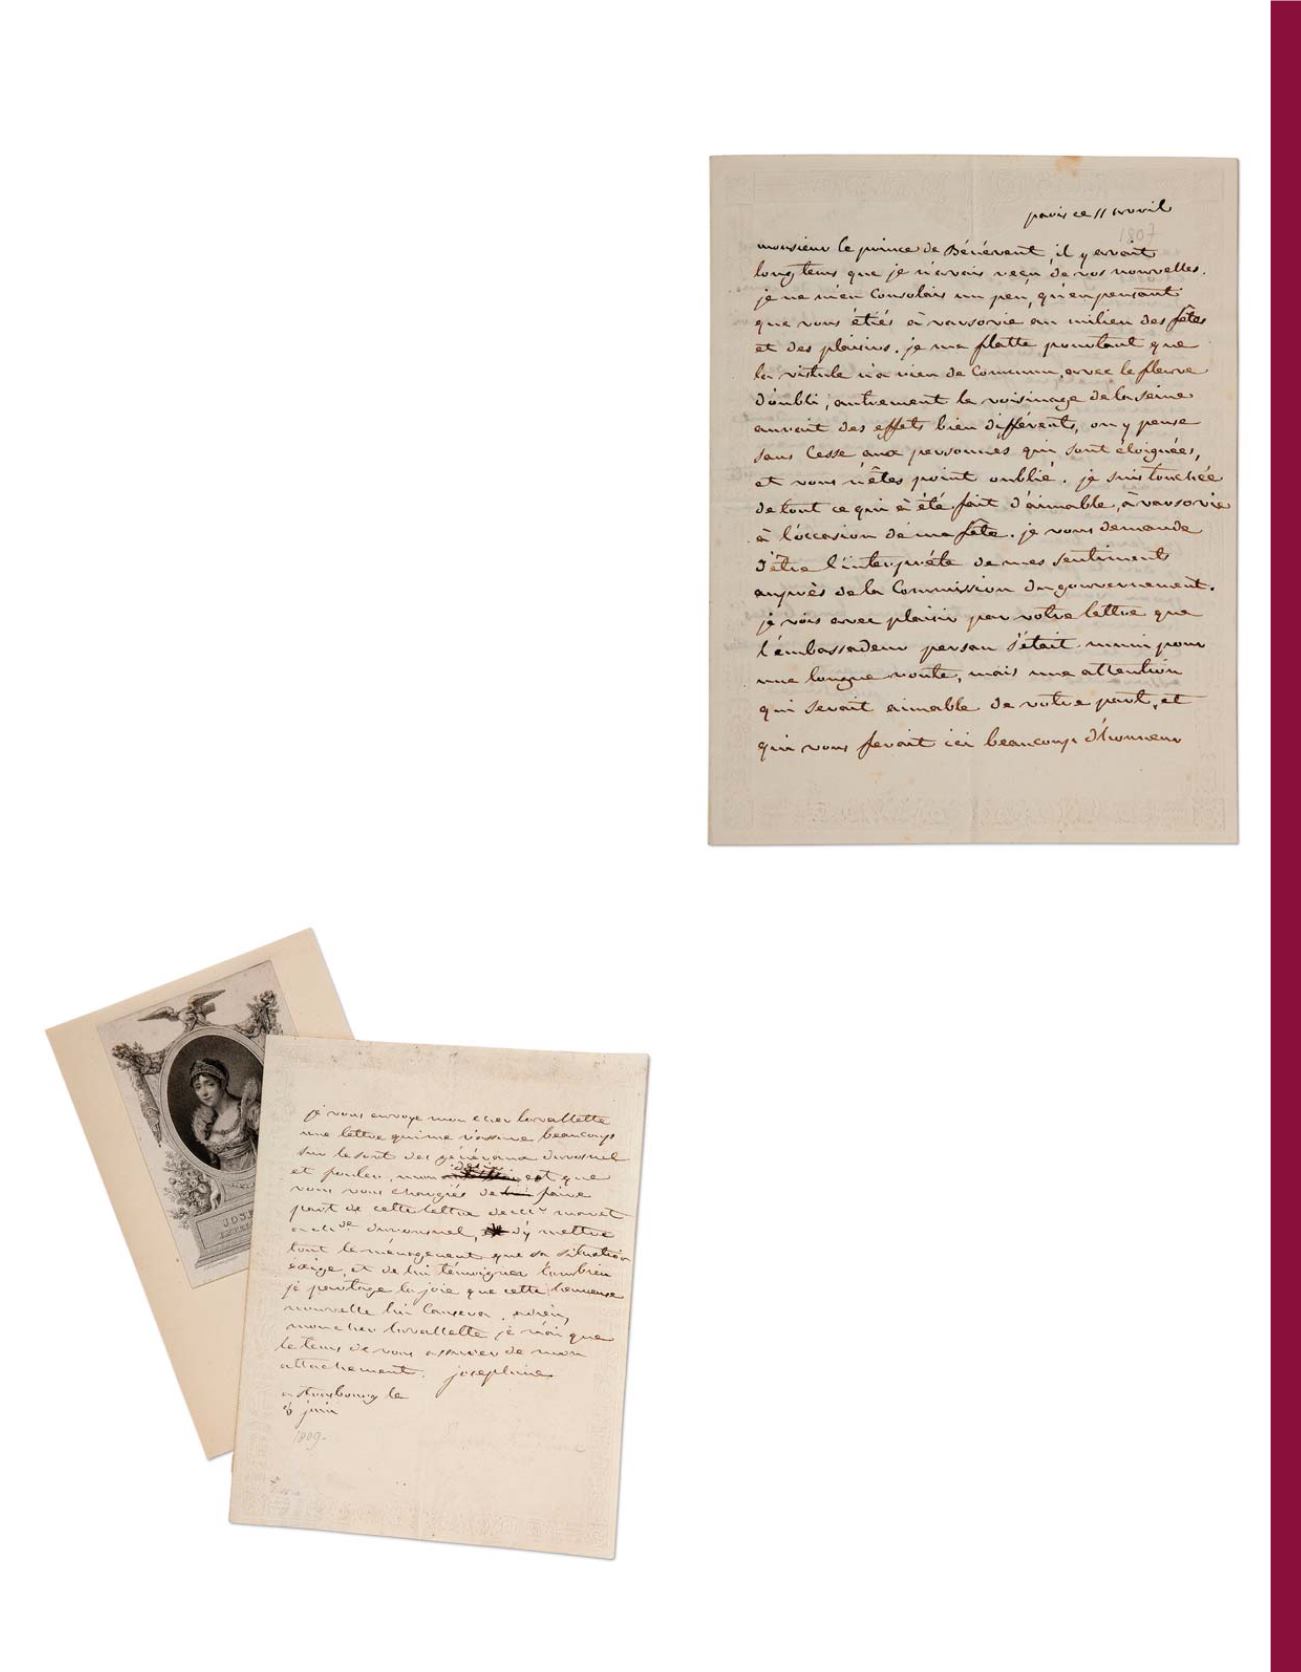 paris ce 11 avril
1807
monsieur le prince de Bénévent, il y avait
longtems que je n'avais reçu de vos nouvelles.
je ne m'en consolais un peu, qu'en pensant
que vous étiés à varsovie au milieu des fêtes
et des plaisirs. je me flatte pourtant que
la vistule n'a rien de commun, avec le fleuve
d'oubli, autrement le voisinage de la seine
aurait des effets bien différents, on y pense
sans cesse aux personnes qui sont éloignées,
et vous n'êtes point oublié. je suis touchée
de tout ce qui a été fait d'aimable, à varsovie
à l'occasion de ma fête. je vous demande
d'être l'interpréte de mes sentiments
auprès de la Commission du gouvernement.
je vois avec plaisir par votre lettre que
l'embassadeur persan s'était muni pour
une longue route, mais une attention
qui serait aimable de votre part, et
qui vous ferait ici beaucoup d'honneur
JOSE
je vous envoye mon cher lavallette
une lettre qui me rassure beaucoup
sur le sort des généraux durosnel
et fouler, mon desir est que
vous vous chargiés de faire
part de cette lettre de mr maret
a me durosnel, d'y mettre
tout le ménagement que sa situation
éxige, et de lui témoigner combien
je partage la joie que cette heureuse
nouvelle lui causera. adieu,
mon cher lavallette je n'ai que
le tems de vous assurer de mon
attachement. josephine
a strasbourg le
8 juin
1809.